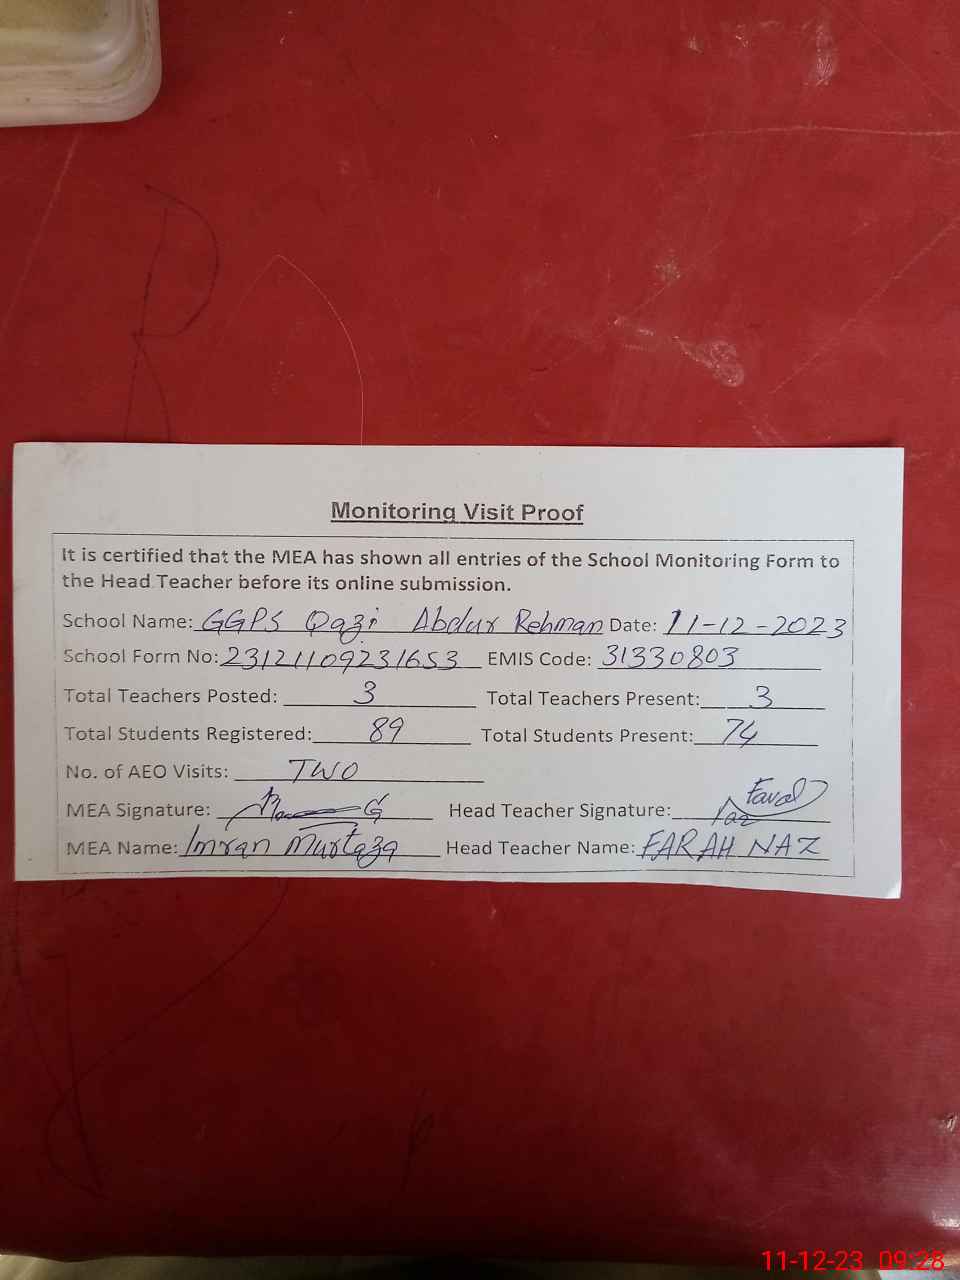 Monitoring Visit Proof
It is certified that the MEA has shown all entries of the School Monitoring Form to
the Head Teacher before its online submission.
School Name: GGPS Qazi Abdur Rehman Date: 11-12-2023
School Form No: 23121109231653 EMIS Code: 31330803
Total Teachers Posted: 3 Total Teachers Present: 3
Total Students Registered: 89 Total Students Present: 74
No. of AEO Visits: TWO
MEA Signature: Head Teacher Signature:
MEA Name: Imran Murtaza Head Teacher Name: FARAH NAZ
11-12-23 09:28